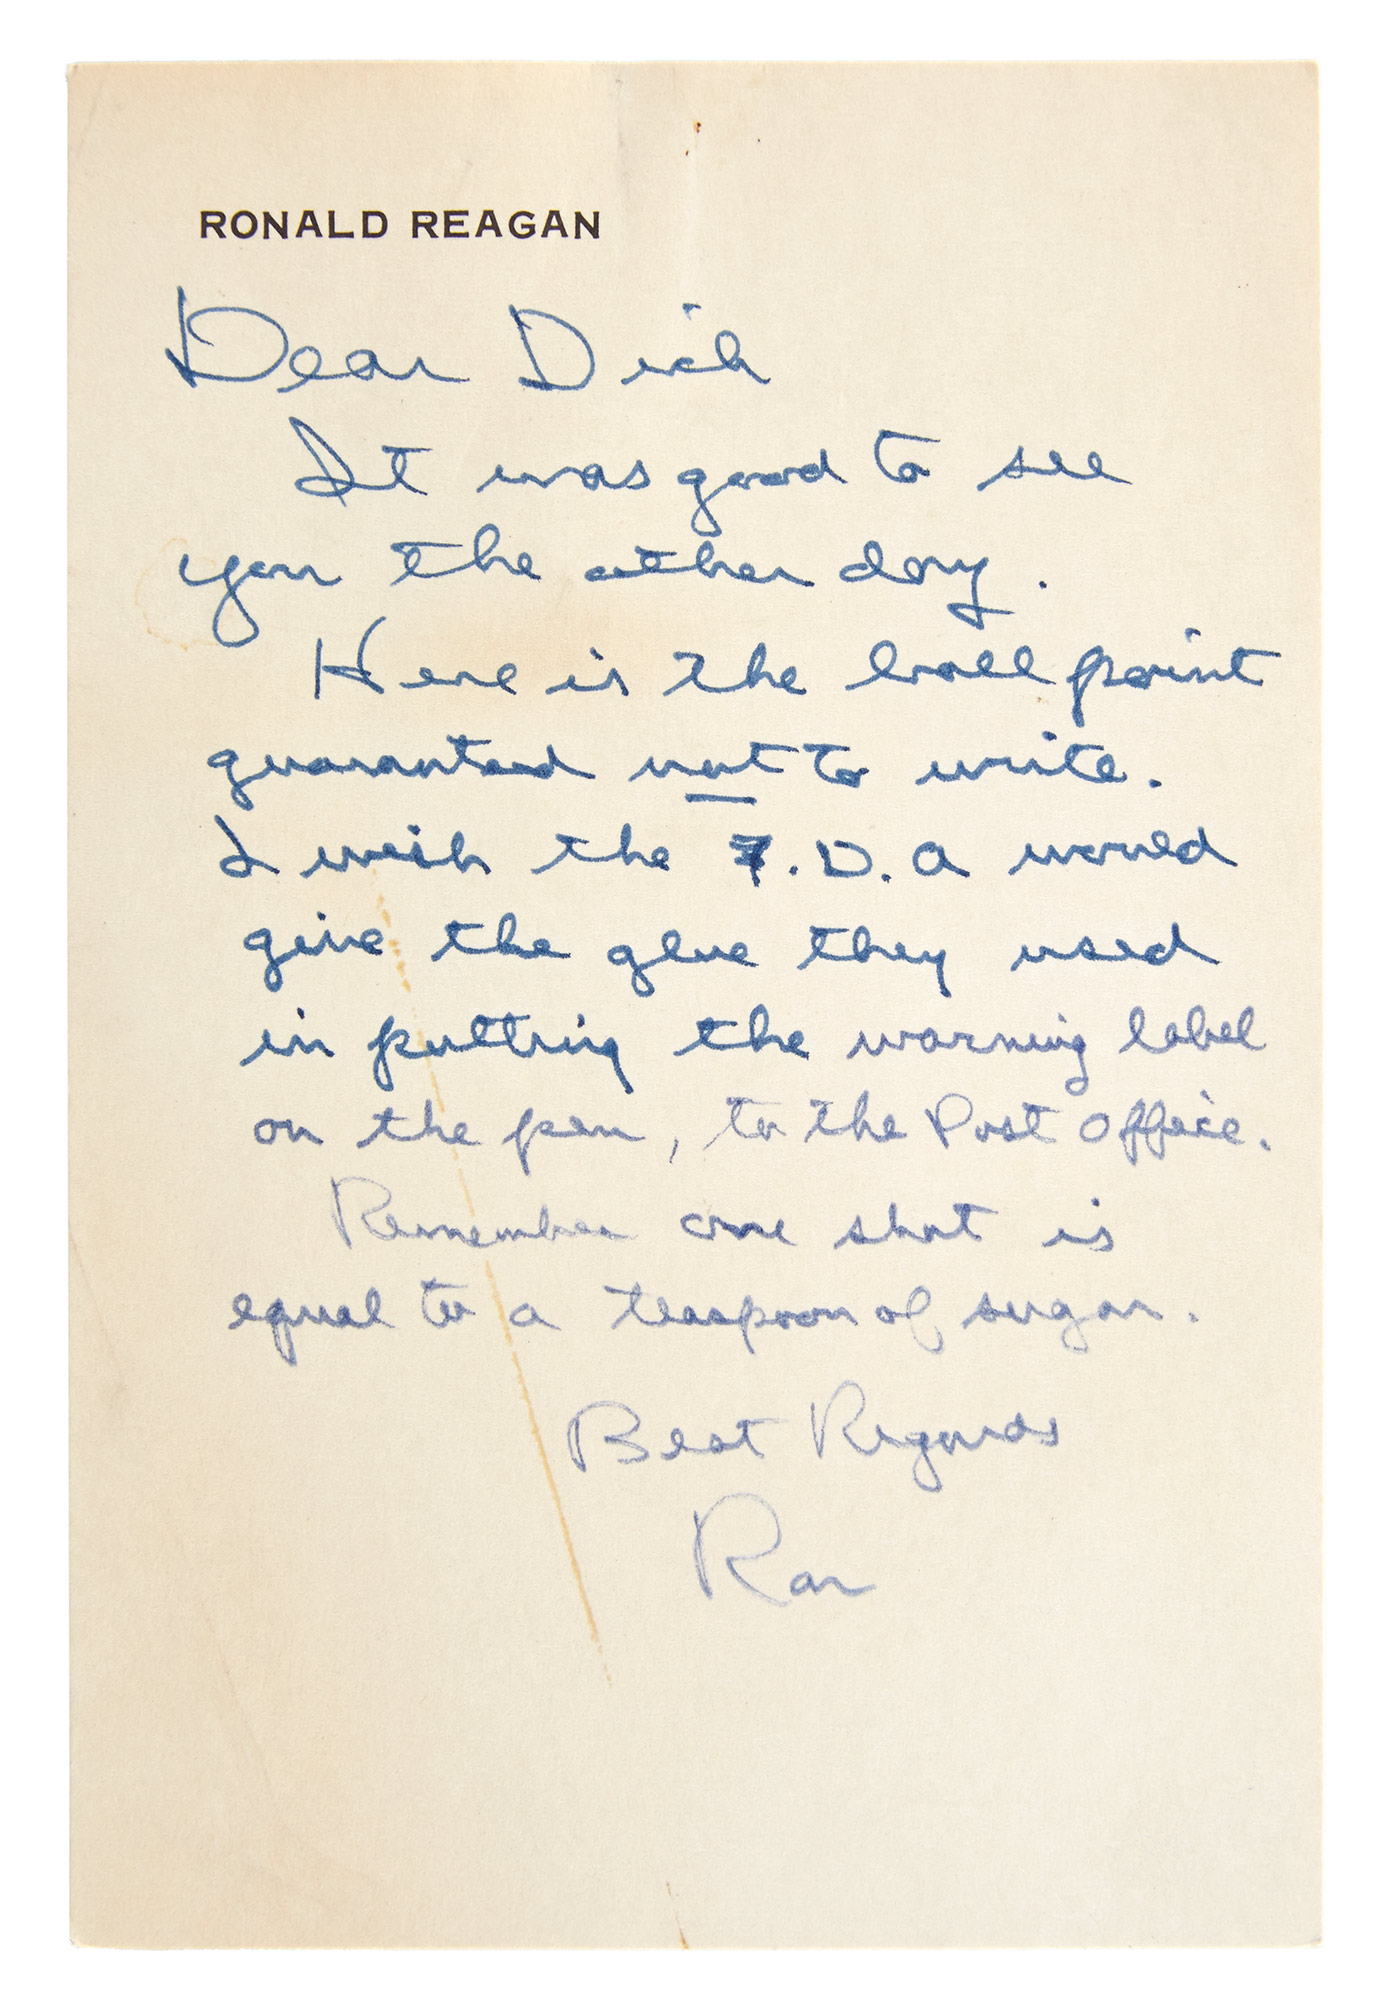 RONALD REAGAN
Dear Dick
It was good to see
you the other day.
Here is the ball point
guaranteed not to write.
I wish the F.D.A would
give the glue they used
in putting the warning label
on the pen, to the Post Office.
Remember one shot is
equal to a teaspoon of sugar.
Best Regards
Ron